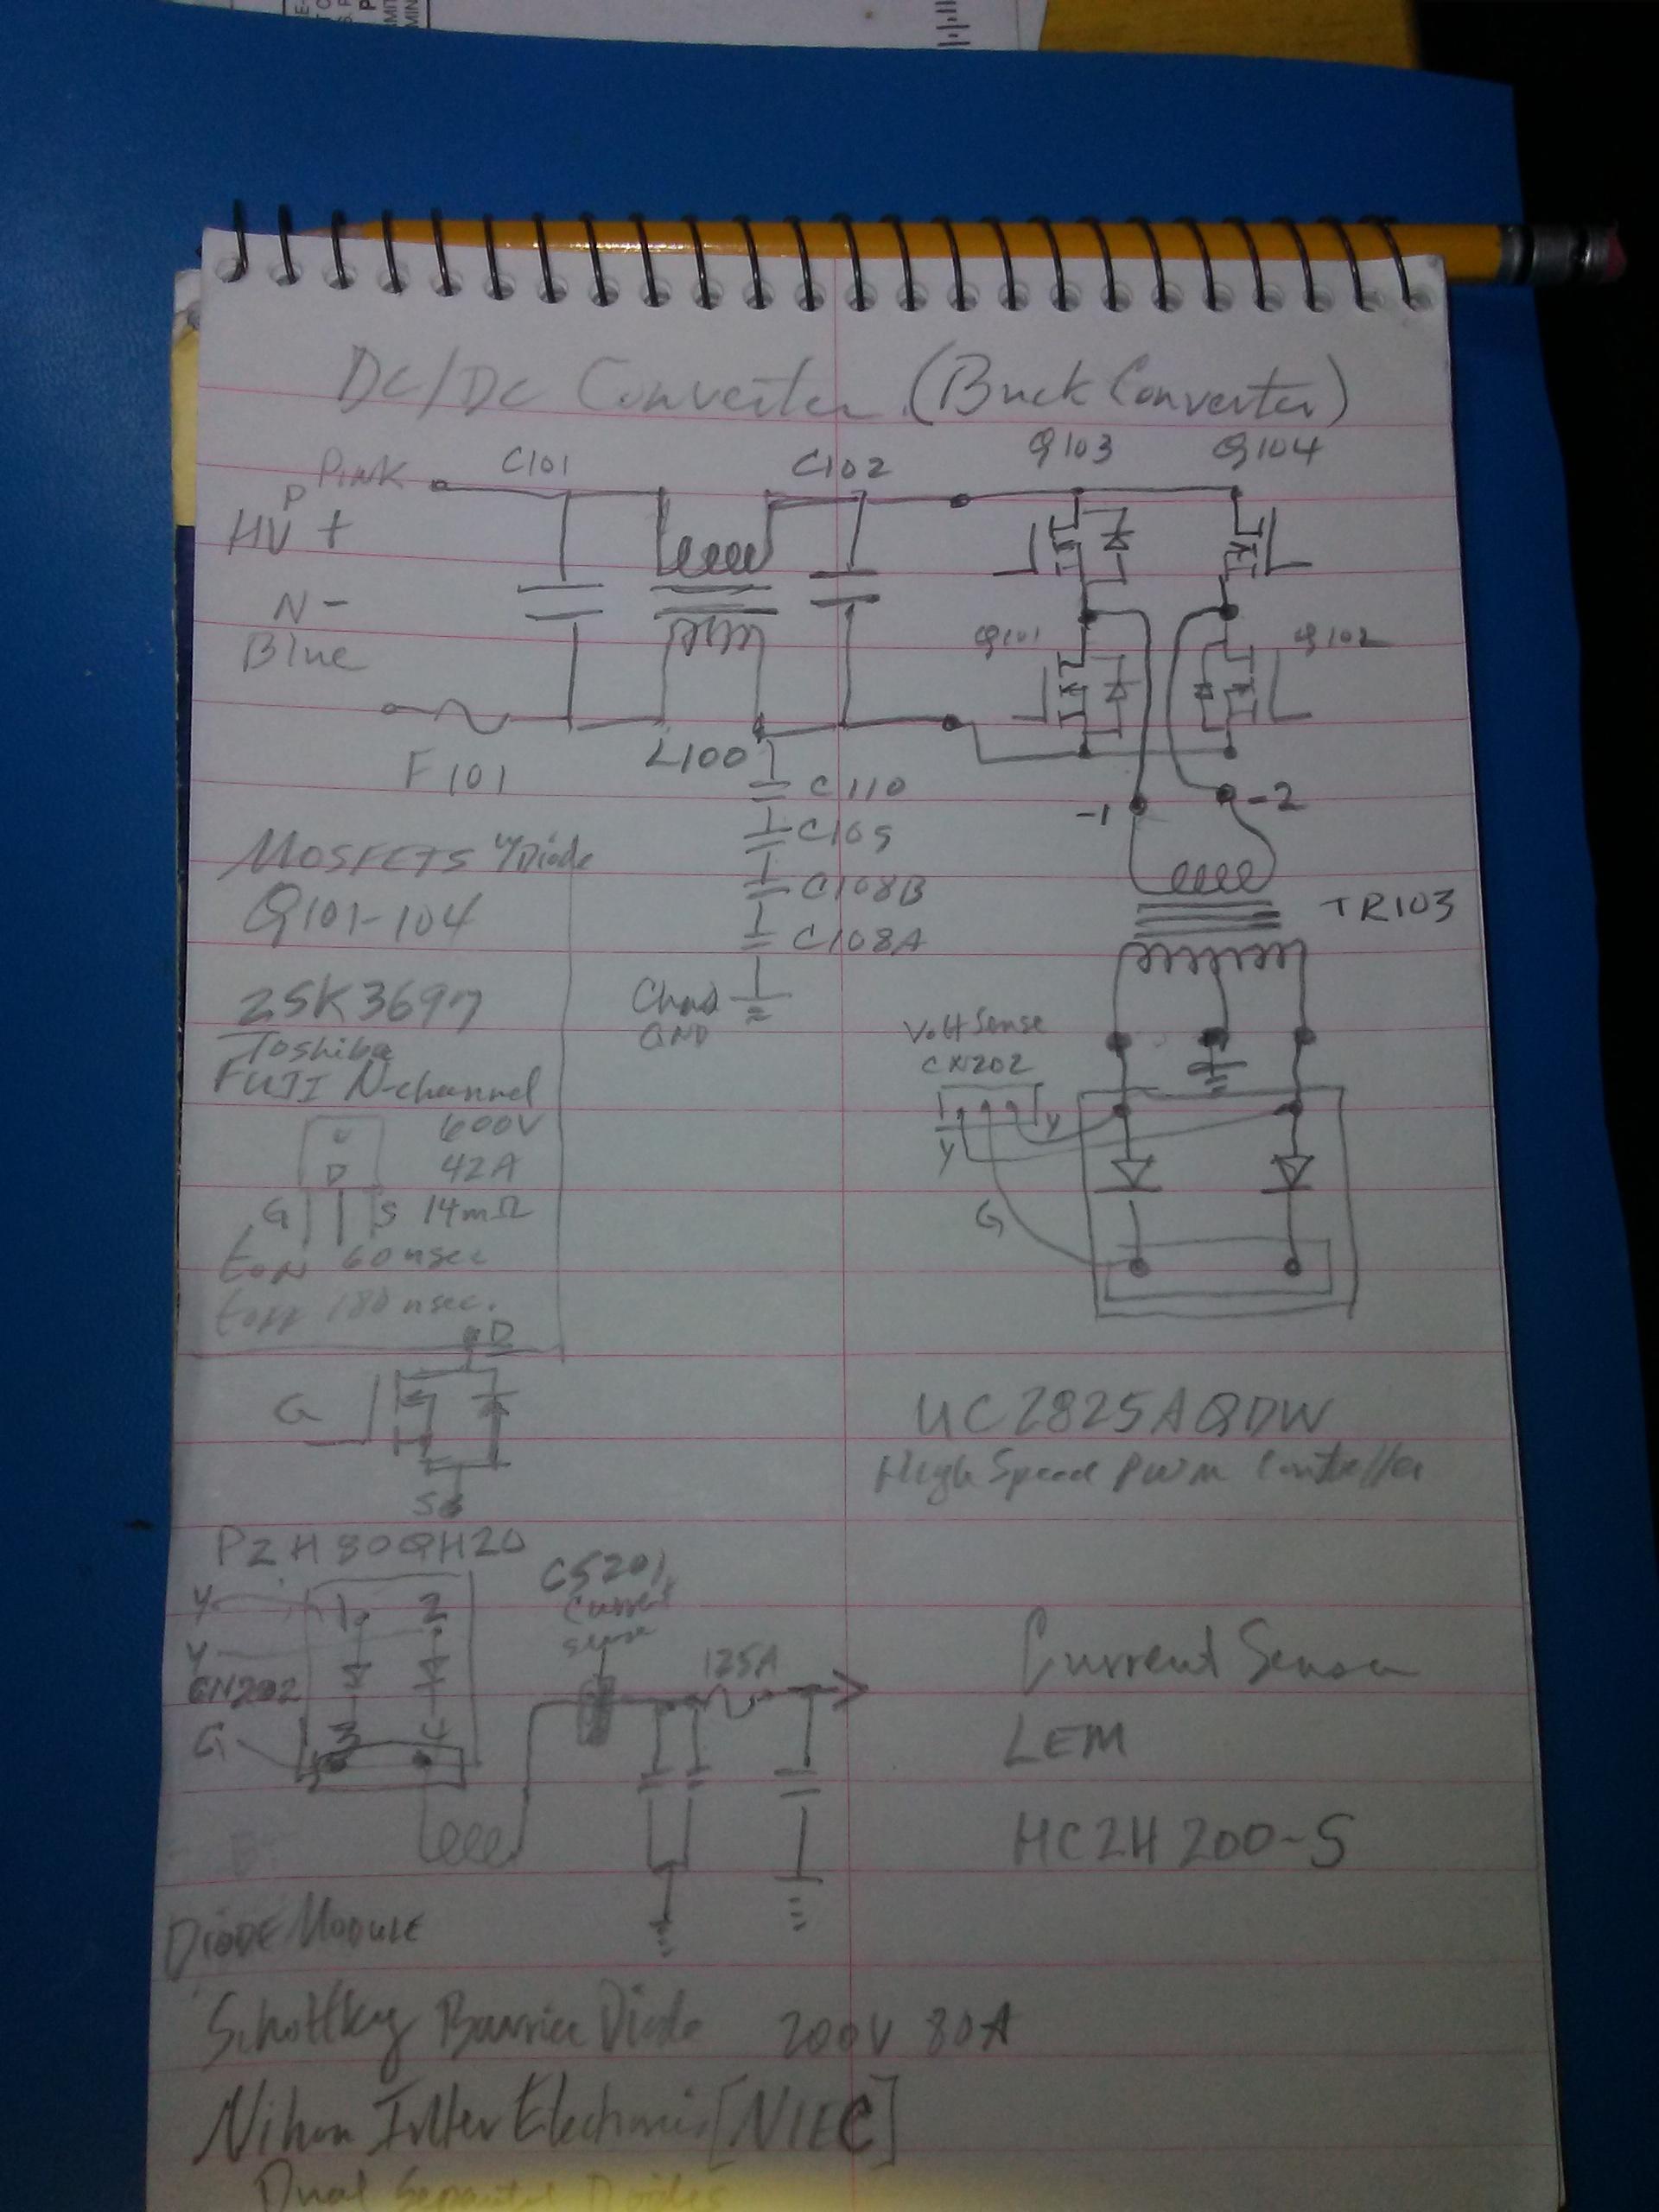 DC/DC Converter (Buck Converter)
Pink
C101
C102
Q103
Q104
P
HV +
N -
Blue
Q101
Q102
F101
L100
C110
-1
-2
MOSFETS w/Diode
C109
C108B
TR103
Q101-104
C108A
2SK3697
Chas
GND
Volt Sense
CN202
Toshiba
FUJI N-channel
600V
Y
Y
D
42A
G
S
14mΩ
G
tON 60 nsec
tOFF 180 nsec.
D
G
UC2825AQDW
High Speed PWM Controller
S
P2H80QH20
CS201
Current
sense
Y
1
2
Y
125A
Current Sensor
CN202
G
3
4
LEM
HC2H200-S
DIODE MODULE
Schottky Barrier Diode 200V 80A
Nihon Inter Electronics [NIEC]
Dual Separated Diodes